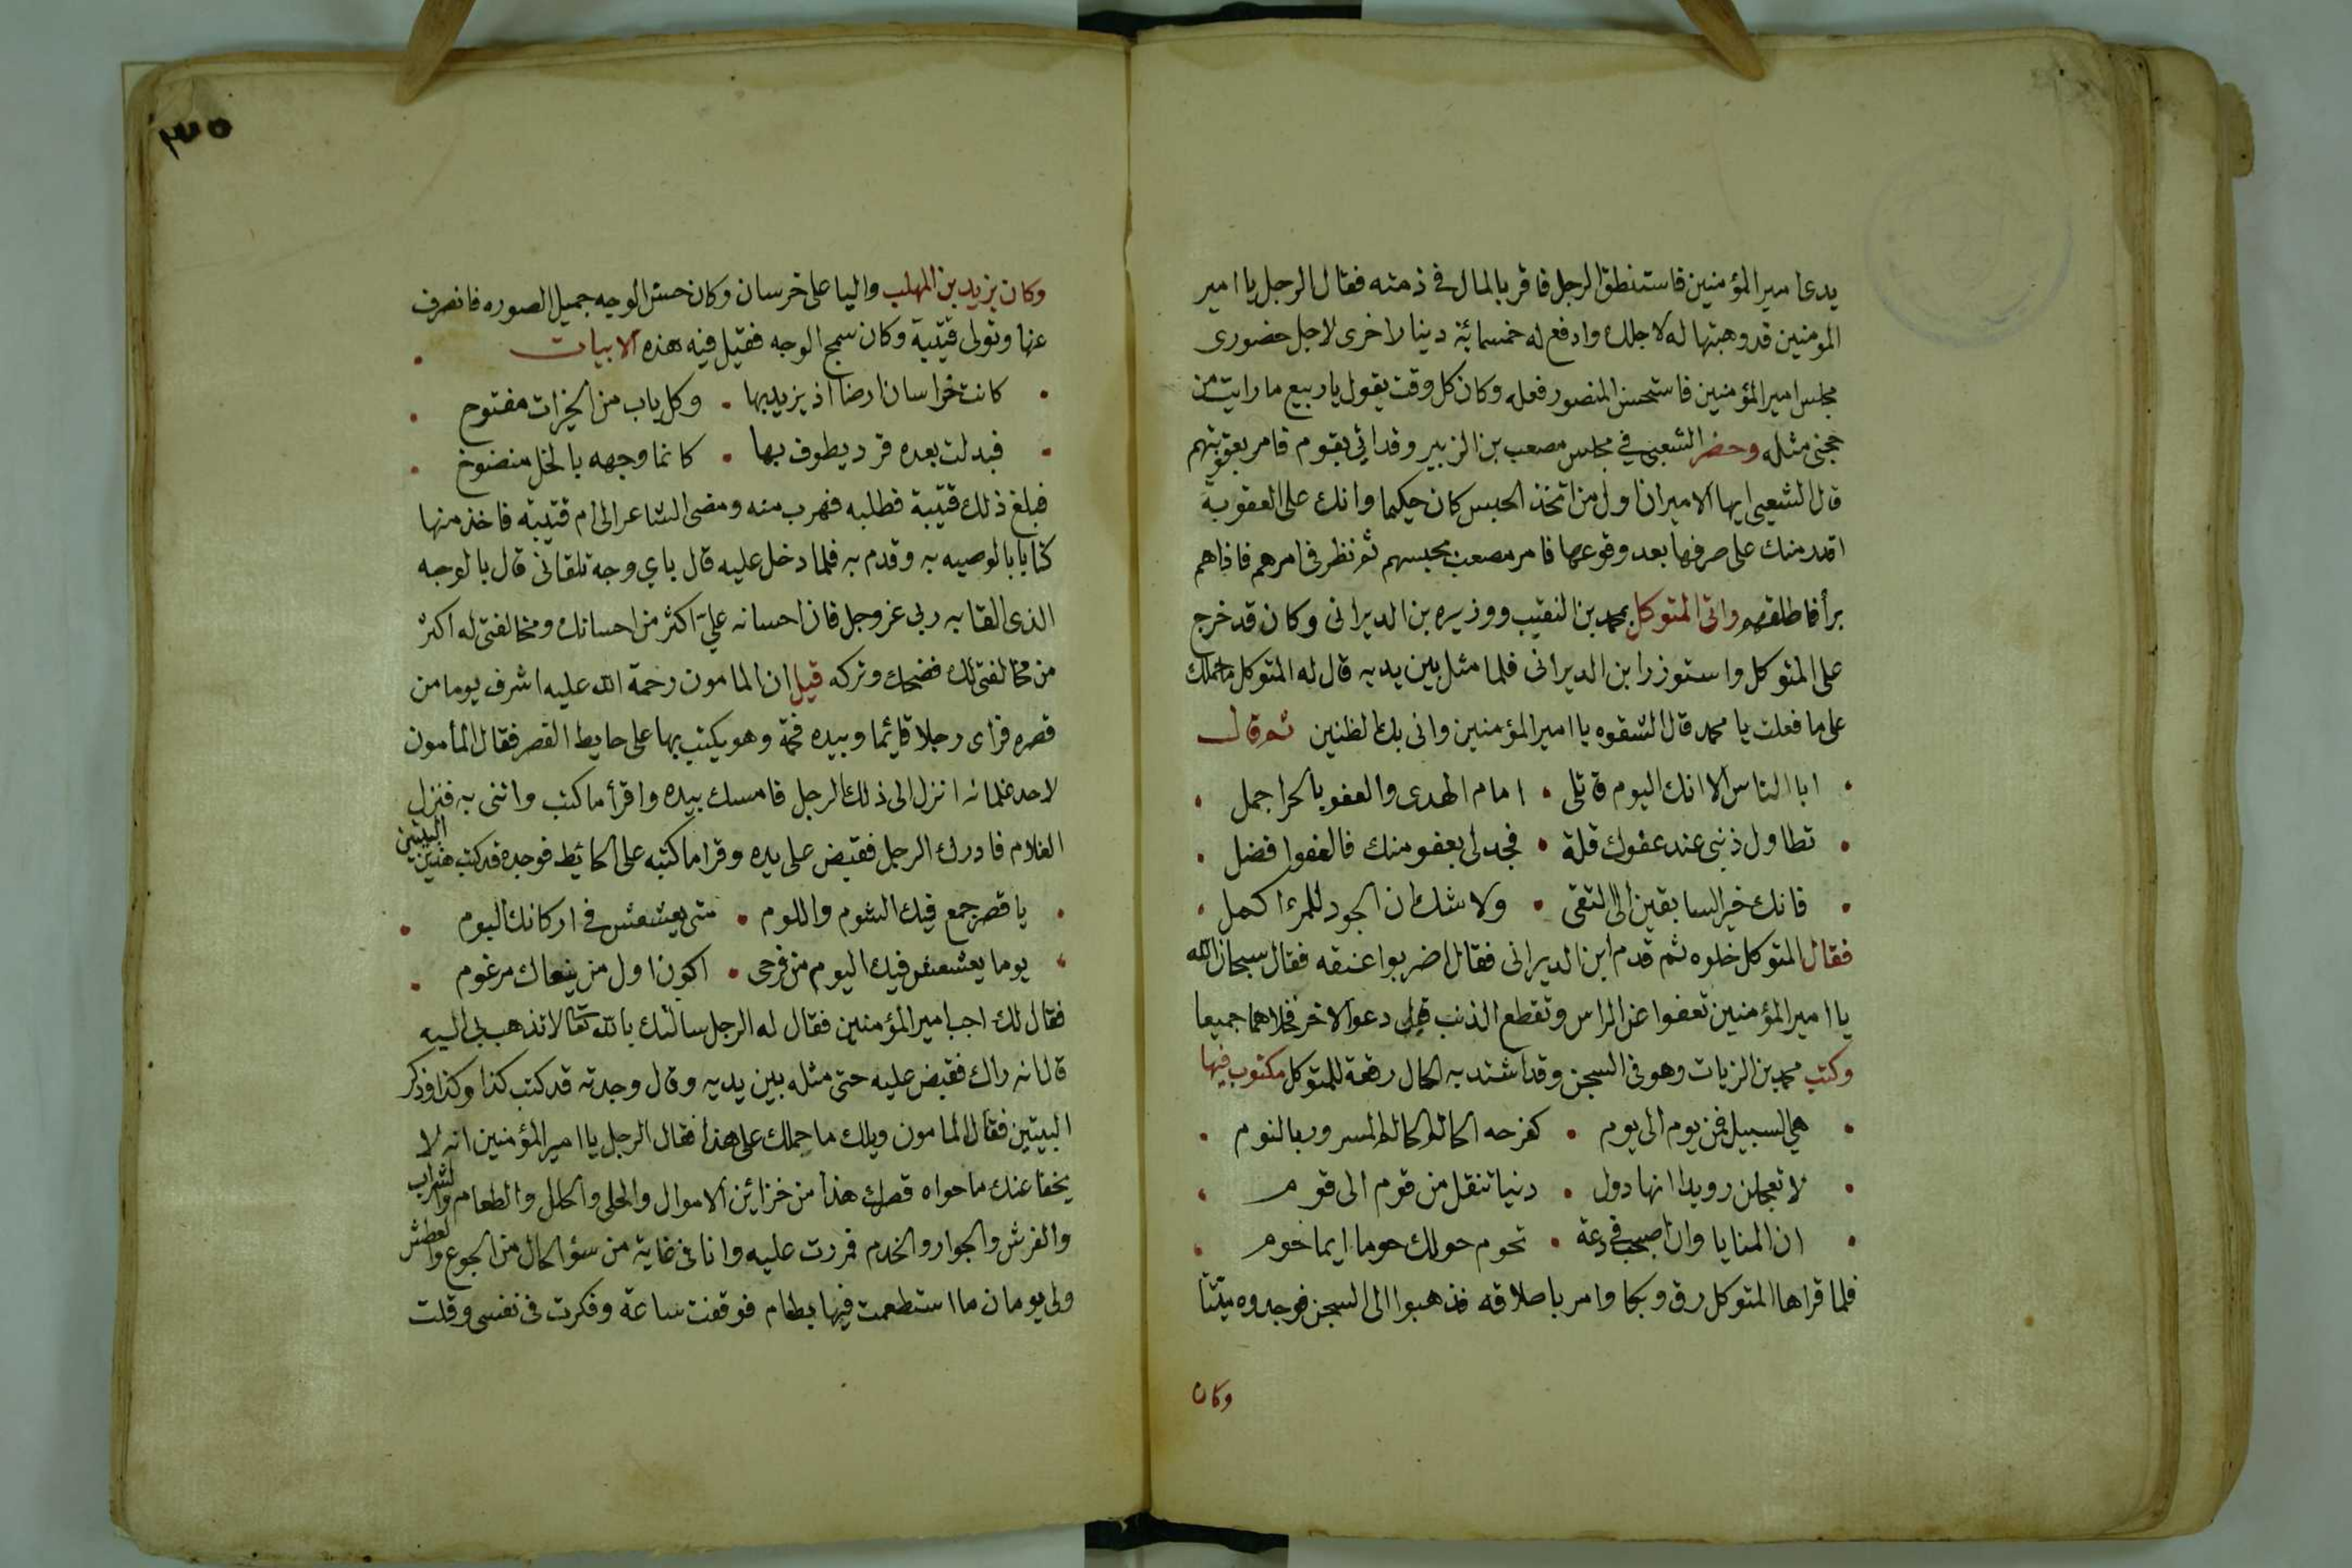 يدعا مير المؤمنين فاستنطق الرجل فاقر بالمال في ذمته فقال الرجل يا امير
المومنين قد وهبتها له لاجلك وادفع له خمسمائة دينار اخرى لاجل حضورى
مجلس امير المؤمنين فاستحسن المنصور فعله وكان كل وقت يقول يا ربيع ما رايت من
حجنى مثله وحضر الشعبى في مجلس مصعب بن الزبير وقد اتي بقوم فامر بعقوبتهم
قال الشعبى ايها الامير ان اول من اتخذ الحبس كان حكيما وانك على العقوبة
اقدر منك على صرفها بعد وقوعها فامر مصعب بحبسهم ثم نظر فى امرهم فاذاهم
برأ فاطلقهم واتى المتوكل بمحمد بن النقيب ووزيره بن الديرانى وكان قد خرج
على المتوكل واستوزر ابن الديرانى فلما مثل بين يديه قال له المتوكل ما حملك
على ما فعلت يا محمد قال الشقوه يا امير المؤمنين وانى بك لظنين ثم قال
ابا الناس الا انك اليوم قاتلى • امام الهدى والعفو بالحر اجمل
تطاول ذنبى عند عفوك قلة • فجد لى بعفو منك فالعفوا فضل
فانك خير السابقين الى التقى • ولا شك ان الجود للمرء اكمل
فقال المتوكل خلوه ثم قدم ابن الديرانى فقال اضربوا عنقه فقال سبحان الله
يا امير المؤمنين تعفوا عن الراس وتقطع الذنب قال دعوا الاخر فخلاهما جميعا
وكتب محمد بن الزيات وهو فى السجن وقد اشتد به الحال رقعة للمتوكل مكتوب فيها
هي السبيل فمن يوم الى يوم • كفرحه الحالم المسرور بالنوم
لا تعجلن رويدا انها دول • دنيا تنقل من قوم الى قوم
ان المنايا وان اصبحت فى دعة • تحوم حولك حوما ايما حوم
فلما قراها المتوكل رق وبكا وامر باطلاقه فذهبوا الى السجن فوجدوه ميتتا
وكان
٣٥
وكان يزيد بن المهلب واليا على خرسان وكان حسن الوجه جميل الصوره فانصرف
عنها وتولى قتيبة وكان سمج الوجه فقيل فيه هذه الابيات
كانت خراسان ارضا اذ يزيد بها • وكل باب من الخيرات مفتوح
فبدلت بعده قرد يطوف بها • كانما وجهه بالخل منضوخ
فبلغ ذلك قتيبة فطلبه فهرب منه ومضى الشاعر الى ام قتيبة فاخذ منها
كتابا بالوصيه به وقدم به فلما دخل عليه قال باي وجه تلقانى قال بالوجه
الذى القا به ربى عز وجل فان احسانه علي اكثر من احسانك ومخالفتى له اكثر
من مخالفتى لك فضحك وتركه قيل ان المامون رحمة الله عليه اشرف يوما من
قصره فراى رجلا قائما وبيده فحمة وهو يكتب بها على حايط القصر فقال المأمون
لاحد غلمانه انزل الى ذلك الرجل فامسك بيده واقرأ ما كتب واتنى به فنزل
الغلام فادرك الرجل فقبض على يده وقرا ما كتبه على الحائط فوجده قد كتب هذين البيتين
يا قصر جمع فيك الشوم واللوم • متى يعشعش فى اركانك البوم
يوما يعشعش فيك اليوم من فرحى • اكون اول من ينعاك مرغوم
فقال لك اجب امير المؤمنين فقال له الرجل سالتك بالله تعالى لا تذهب بى اليه
قال انه راك فقبض عليه حتى مثله بين يديه وقال وجدته قد كتب كذا وكذا وذكر
البيتين فقال المامون ويلك ما حملك على هذا فقال الرجل يا امير المؤمنين انه لا
يخفا عنك ما حواه قصرك هذا من خزائن الاموال والحلى والحلل والطعام والشراب
والفرش والجوار والخدم فمررت عليه وانا فى غاية من سؤ الحال من الجوع والعطش
ولى يومان ما استطعمت فيها بطعام فوقفت ساعة وفكرت فى نفسى وقلت